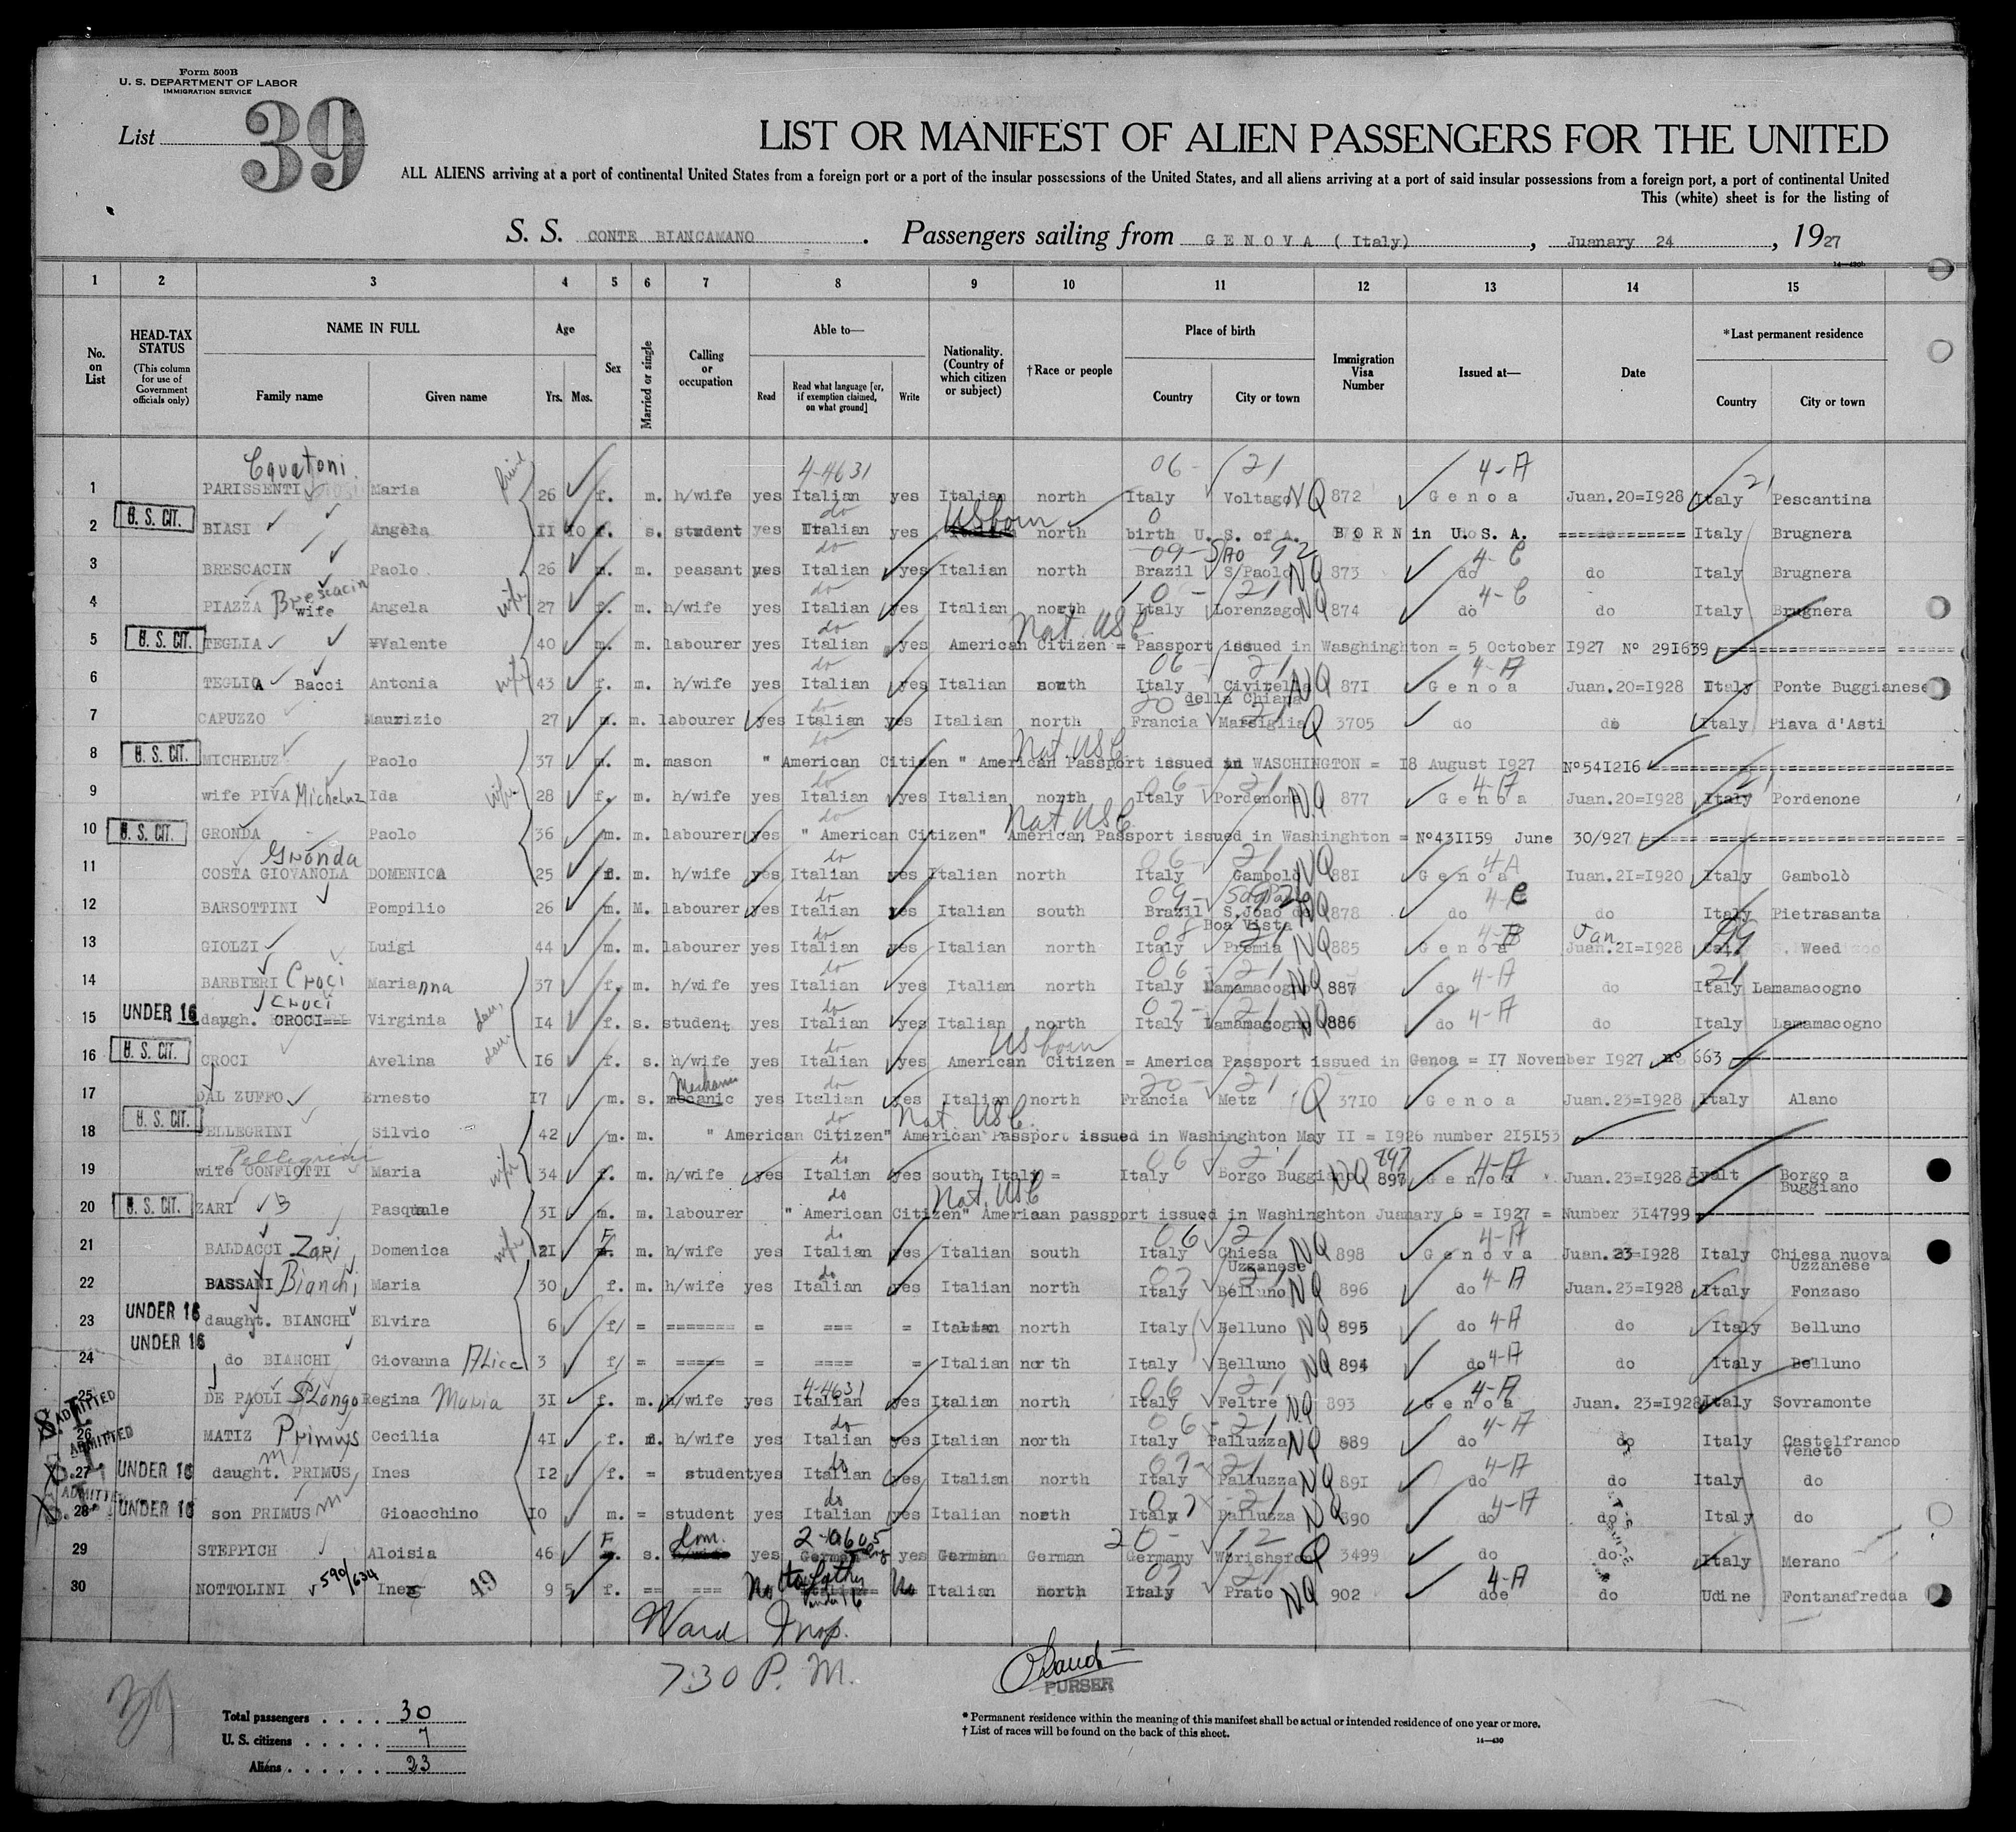 Form 500B
U. S. DEPARTMENT OF LABOR
IMMIGRATION SERVICE
List 39
LIST OR MANIFEST OF ALIEN PASSENGERS FOR THE UNITED
ALL ALIENS arriving at a port of continental United States from a foreign port or a port of the insular possessions of the United States, and all aliens arriving at a port of said insular possessions from a foreign port, a port of continental United
This (white) sheet is for the listing of
S. S. CONTE BIANCAMANO . Passengers sailing from GENOVA (Italy) , Juanary 24 , 1927
14—430b
1 2 3 4 5 6 7 8 9 10 11 12 13 14 15
No. on List
HEAD-TAX STATUS (This column for use of Government officials only)
NAME IN FULL Family name Given name
Age Yrs. Mos.
Sex
Married or single
Calling or occupation
Able to— Read Read what language [or, if exemption claimed, on what ground] Write
Nationality. (Country of which citizen or subject)
†Race or people
Place of birth Country City or town
Immigration Visa Number
Issued at—
Date
*Last permanent residence Country City or town
4-4631 06- 21 4-A
1 PARISSENTI Maria 26 f. m. h/wife yes Italian yes Italian north Italy Voltago NQ 872 Genoa Juan.20=I928 Italy 21 Pescantina
U. S. CIT. do US born
2 BIASI Angèla II 10 f. s. student yes Italian yes Italian north birth U. S. of A. BORN in U.S.A. ============ Italy Brugnera
do 09- SAO 92 4-C
3 BRESCACIN Paolo 26 m. m. peasant yes Italian yes Italian north Brazil S/Paolo NQ 873 do do Italy Brugnera
Brescacin wife do 21 4-C
4 PIAZZA wife Angela 27 f. m. h/wife yes Italian yes Italian north Italy Lorenzago NQ 874 do do Italy Brugnera
U. S. CIT. do Nat. USC
5 TEGLIA Valente 40 m. m. labourer yes Italian yes American Citizen = Passport issued in Wasghinghton = 5 October I927 Nº 29I639 ==================
wife do 06- 21 4-A
6 TEGLIA Bacci Antonia 43 f. m. h/wife yes Italian yes Italian south Italy Civitella della Chiana NQ 87I Genoa Juan.20=I928 Italy Ponte Buggianese
do 20 21
7 CAPUZZO Maurizio 27 m. m. labourer yes Italian yes Italian north Francia Marsiglia Q 3705 do do Italy Piava d'Asti
U. S. CIT. do Nat. USC
8 MICHELUZ Paolo 37 m. m. mason " American Citizen " American Passport issued in WASCHINGTON = I8 August I927 Nº54I2I6 ==================
Micheluz wife do 06- 21 4-A
9 wife PIVA Ida 28 f. m. h/wife yes Italian yes Italian north Italy Pordenone NQ 877 Genoa Juan.20=I928 Italy Pordenone
U. S. CIT. do Nat USC
10 GRONDA Paolo 36 m. m. labourer yes " American Citizen" American Passport issued in Washinghton = Nº43II59 June 30/927 ==================
Gronda do 06- 21 4A
11 COSTA GIOVANOLA DOMENICA 25 f. m. h/wife yes Italian yes Italian north Italy Gambolò NQ 88I Genoa Iuan.2I=I920 Italy Gambolò
do 09-
12 BARSOTTINI Pompilio 26 m. M. labourer yes Italian yes Italian south Brazil S.Joao da Boa Vista NQ 878 do do Italy Pietrasanta
do 21 4-B Jan
13 GIOLZI Luigi 44 m. m. labourer yes Italian yes Italian north Italy Premia NQ 885 Genoa Juan.2I=I928 Cal. Weed
Croci do 06- 21 4-A 21
14 BARBIERI Marianna 37 f. m. h/wife yes Italian yes Italian north Italy Lamamacogno NQ 887 do do Italy Lamamacogno
UNDER 16 CROCI dau. do 07- 21 4-A
15 daugh. CROCI=== Virginia I4 f. s. student yes Italian yes Italian north Italy Lamamacogno NQ 886 do do Italy Lamamacogno
U. S. CIT. dau. do US born
16 CROCI Avelina I6 f. s. h/wife yes Italian yes American Citizen = America Passport issued in Genoa = I7 November I927 nº 663 ------------------
Mechanic do 20- 21
17 DAL ZUFFO Ernesto I7 m. s. mecanic yes Italian yes Italian north Francia Metz Q 37I0 Genoa Juan.23=I928 Italy Alano
U. S. CIT. do Nat. USC.
18 PELLEGRINI Silvio 42 m. m. " American Citizen" American Passport issued in Washinghton May II = I926 number 2I5I53 ------------------
Pellegrini wife do 06 21 897 4-A
19 wife CONFIOTTI Maria 34 f. m. h/wife yes Italian yes south Italy = Italy Borgo Buggiano NQ 897 Genoa Juan.23=I928 Iyalt Borgo a Buggiano
U. S. CIT. do Nat. USC
20 ZARI B Pasquale 3I m. m. labourer " American Citizen" American passport issued in Washinghton Juanary 6 = I927 = Number 3I4799 ------------------
Zari wife F do 06 21 4-A
21 BALDACCI Domenica 2I m. m. h/wife yes Italian yes Italian south Italy Chiesa Uzzanese NQ 898 Genova Juan.23=I928 Italy Chiesa nuova Uzzanese
Bianchi do 07 21 4-A
22 BASSANI Maria 30 f. m. h/wife yes Italian yes Italian north Italy Belluno NQ 896 do Juan.23=I928 Italy Fonzaso
UNDER 16
23 daught. BIANCHI Elvira 6 f/ = ======= = === = Italian north Italy Belluno NQ 895 do 4-A do Italy Belluno
UNDER 16
24 do BIANCHI Giovanna Alice 3 f/ = ===== = ==== = Italian north Italy Belluno NQ 894 do 4-A do Italy Belluno
ADMITTED 4-4631 06 21 4-A
25 DE PAOLI Longo Regina Maria 3I f. m. h/wife yes Italian yes Italian north Italy Feltre NQ 893 Genoa Juan. 23=I928 Italy Sovramonte
ADMITTED do 06- 21 4-A
26 MATIZ Primus Cecilia 4I f. m. h/wife yes Italian yes Italian north Italy Palluzza NQ 889 do do Italy Castelfranco Veneto
UNDER 16 M do 07- 21 4-A
27 daught. PRIMUS Ines I2 f. = student yes Italian yes Italian north Italy Palluzza NQ 89I do do Italy do
ADMITTED UNDER 16 do 07- 21 4-A
28 son PRIMUS M Gioacchino IO m. = student yes Italian yes Italian north Italy Palluzza NQ 390 do do Italy do
F dom. 20- 12
29 STEPPICH Aloisia 46 s. yes German yes German German Germany Worishofen Q 3499 do do Italy Merano
590/634 to father 07 21 4-A
30 NOTTOLINI Ines 49 9 5 f. == === No under 16 No Italian north Italy Prato NQ 902 do do Udine Fontanafredda
Ward Insp.
7:30 P. M.
PURSER
39
Total passengers . . . . 30
U. S. citizens . . . . . 7
Aliens . . . . . . 23
* Permanent residence within the meaning of this manifest shall be actual or intended residence of one year or more.
† List of races will be found on the back of this sheet.
14—430